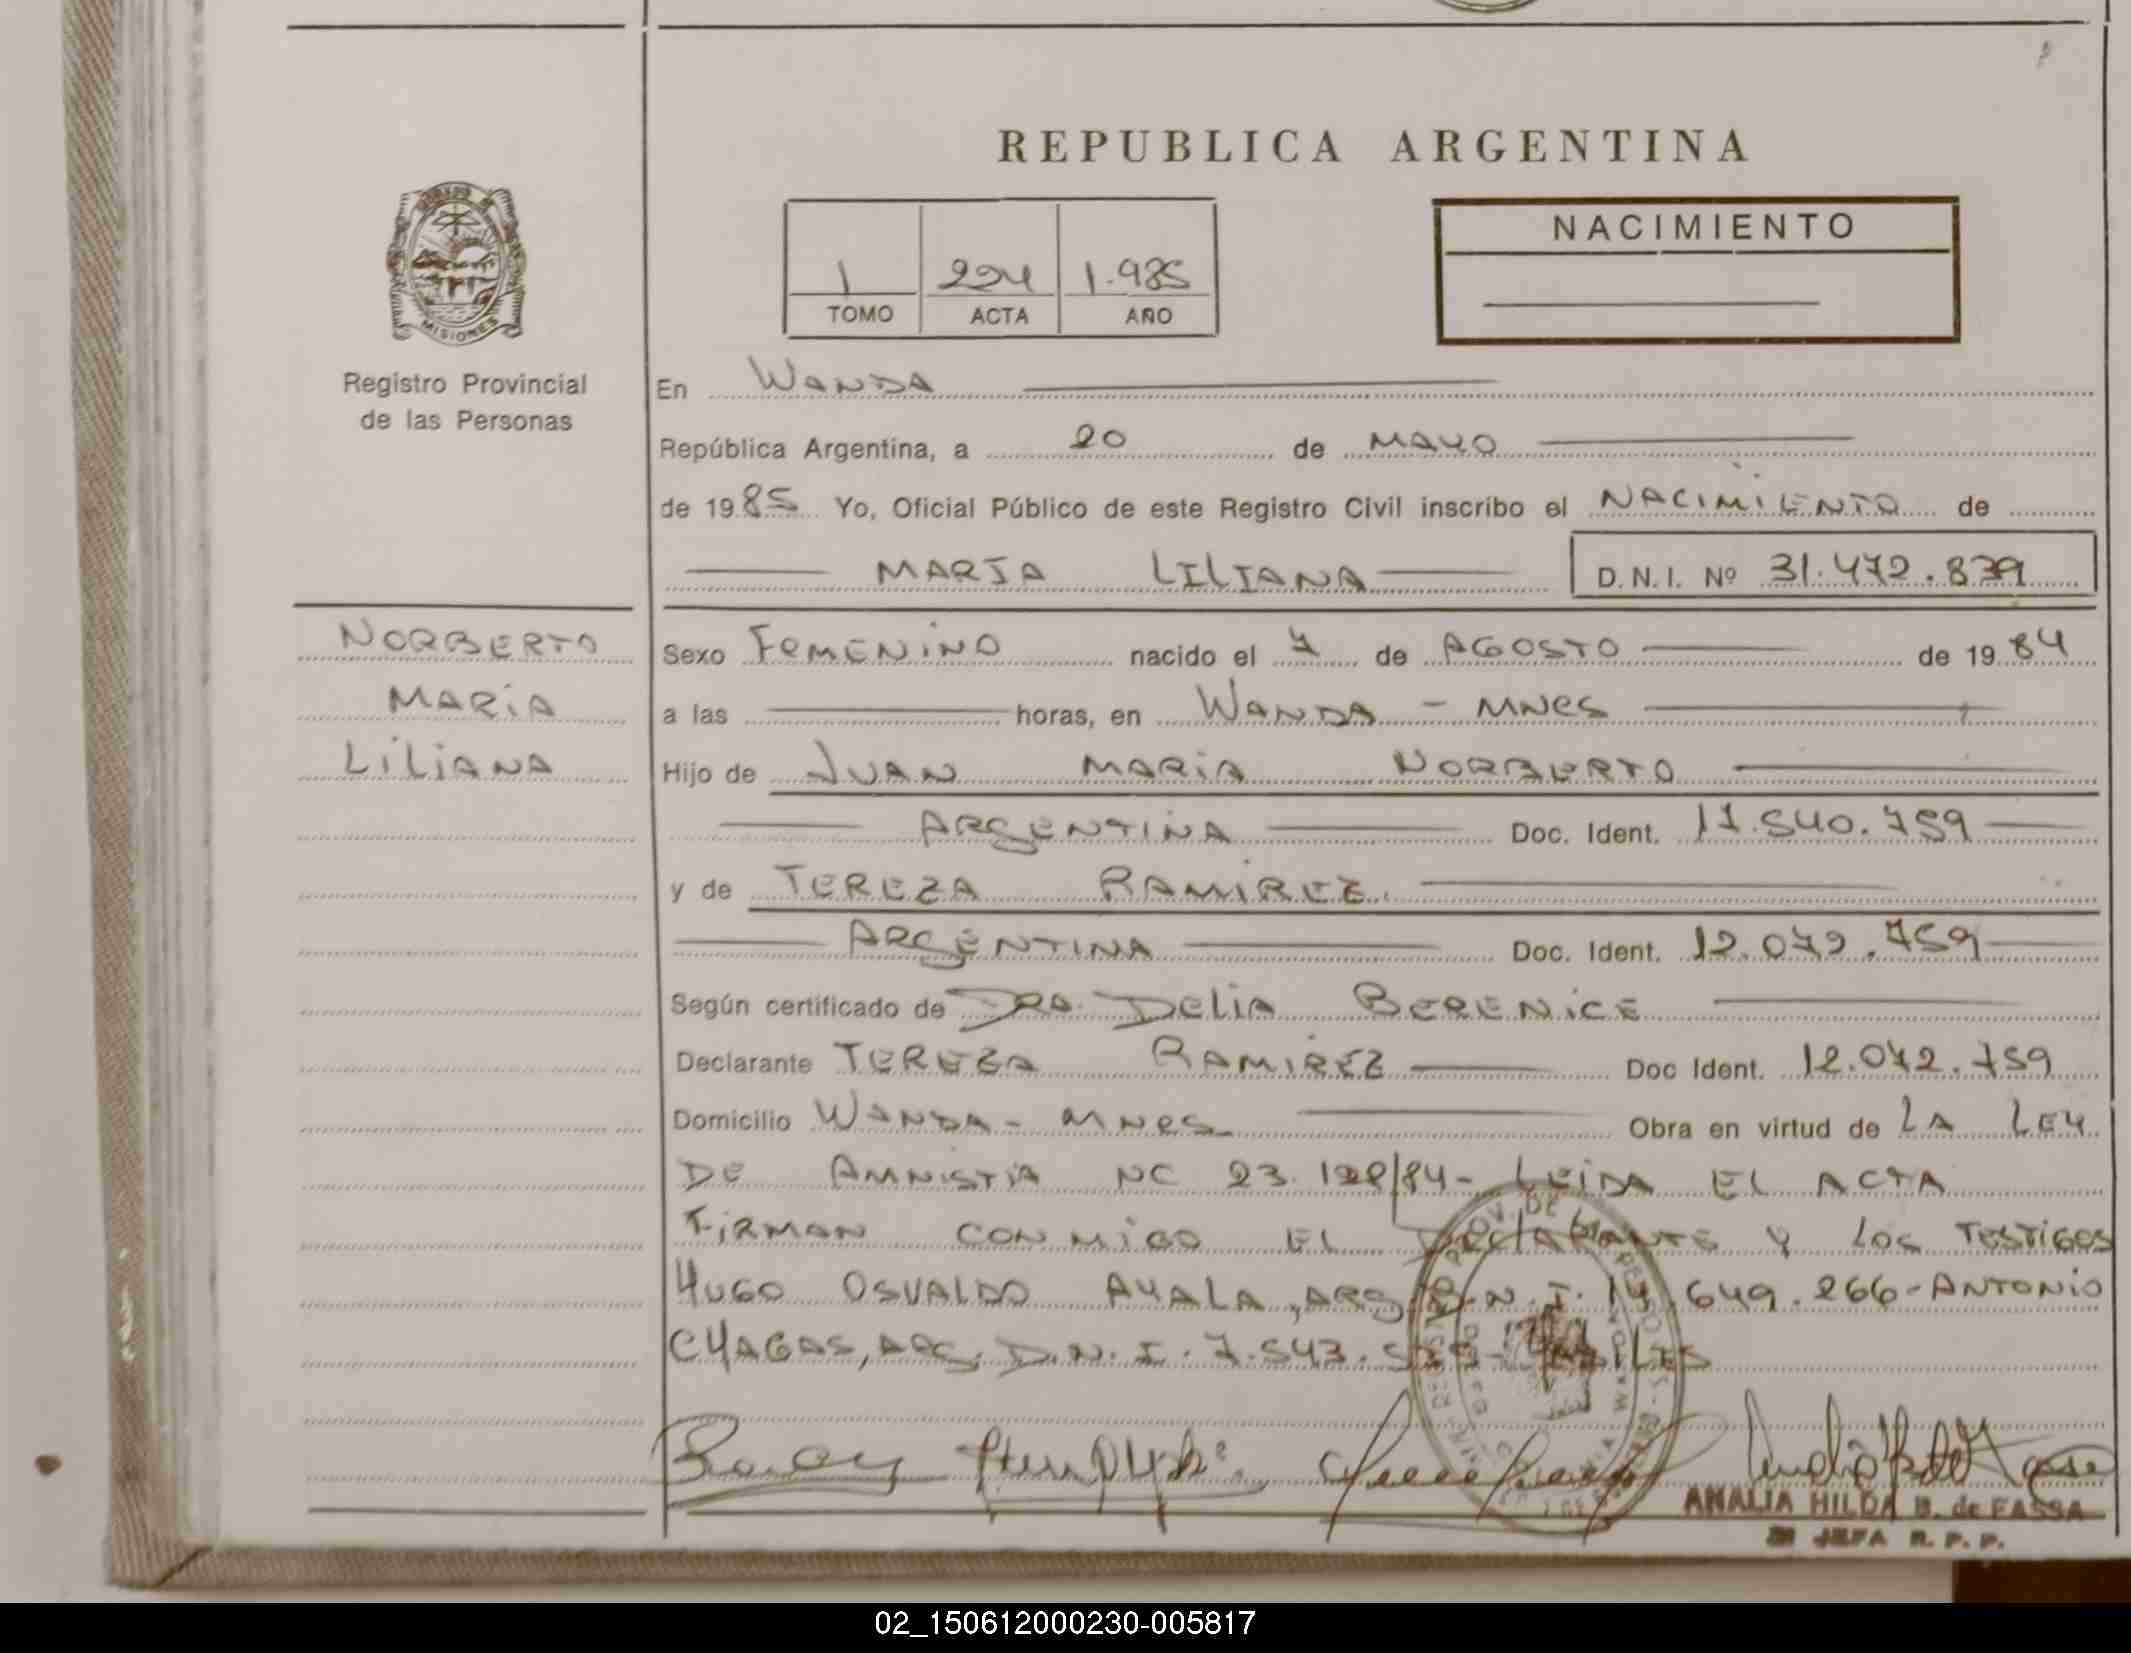 REPUBLICA ARGENTINA
MISIONES
Registro Provincial
de las Personas
1 224 1.985
TOMO ACTA AÑO
NACIMIENTO
En WANDA
República Argentina, a 20 de MAYO
de 1985 Yo, Oficial Público de este Registro Civil inscribo el NACIMIENTO de
MARIA LILIANA D.N.I. Nº 31.472.839
NORBERTO
MARIA
LILIANA
Sexo FEMENINO nacido el 7 de AGOSTO de 1984
a las horas, en WANDA - MNES
Hijo de JUAN MARIA NORBERTO
ARGENTINA Doc. Ident. 17.540.759
y de TEREZA RAMIREZ.
ARGENTINA Doc. Ident. 12.072.759
Según certificado de DRA. DELIA BERENICE
Declarante TEREZA RAMIREZ Doc Ident. 12.072.759
Domicilio WANDA - MNES Obra en virtud de LA LEY
DE AMNISTIA NC 23.128/84- LEIDA EL ACTA
FIRMAN CON MIGO EL DECLARANTE Y LOS TESTIGOS
HUGO OSVALDO AYALA, ARG. D.N.I. 649.266-ANTONIO
CHAGAS, ARG. D.N.I. 7.543.
ANALIA HILDA B. de FASSA
JEFA R. P. P.
02_150612000230-005817